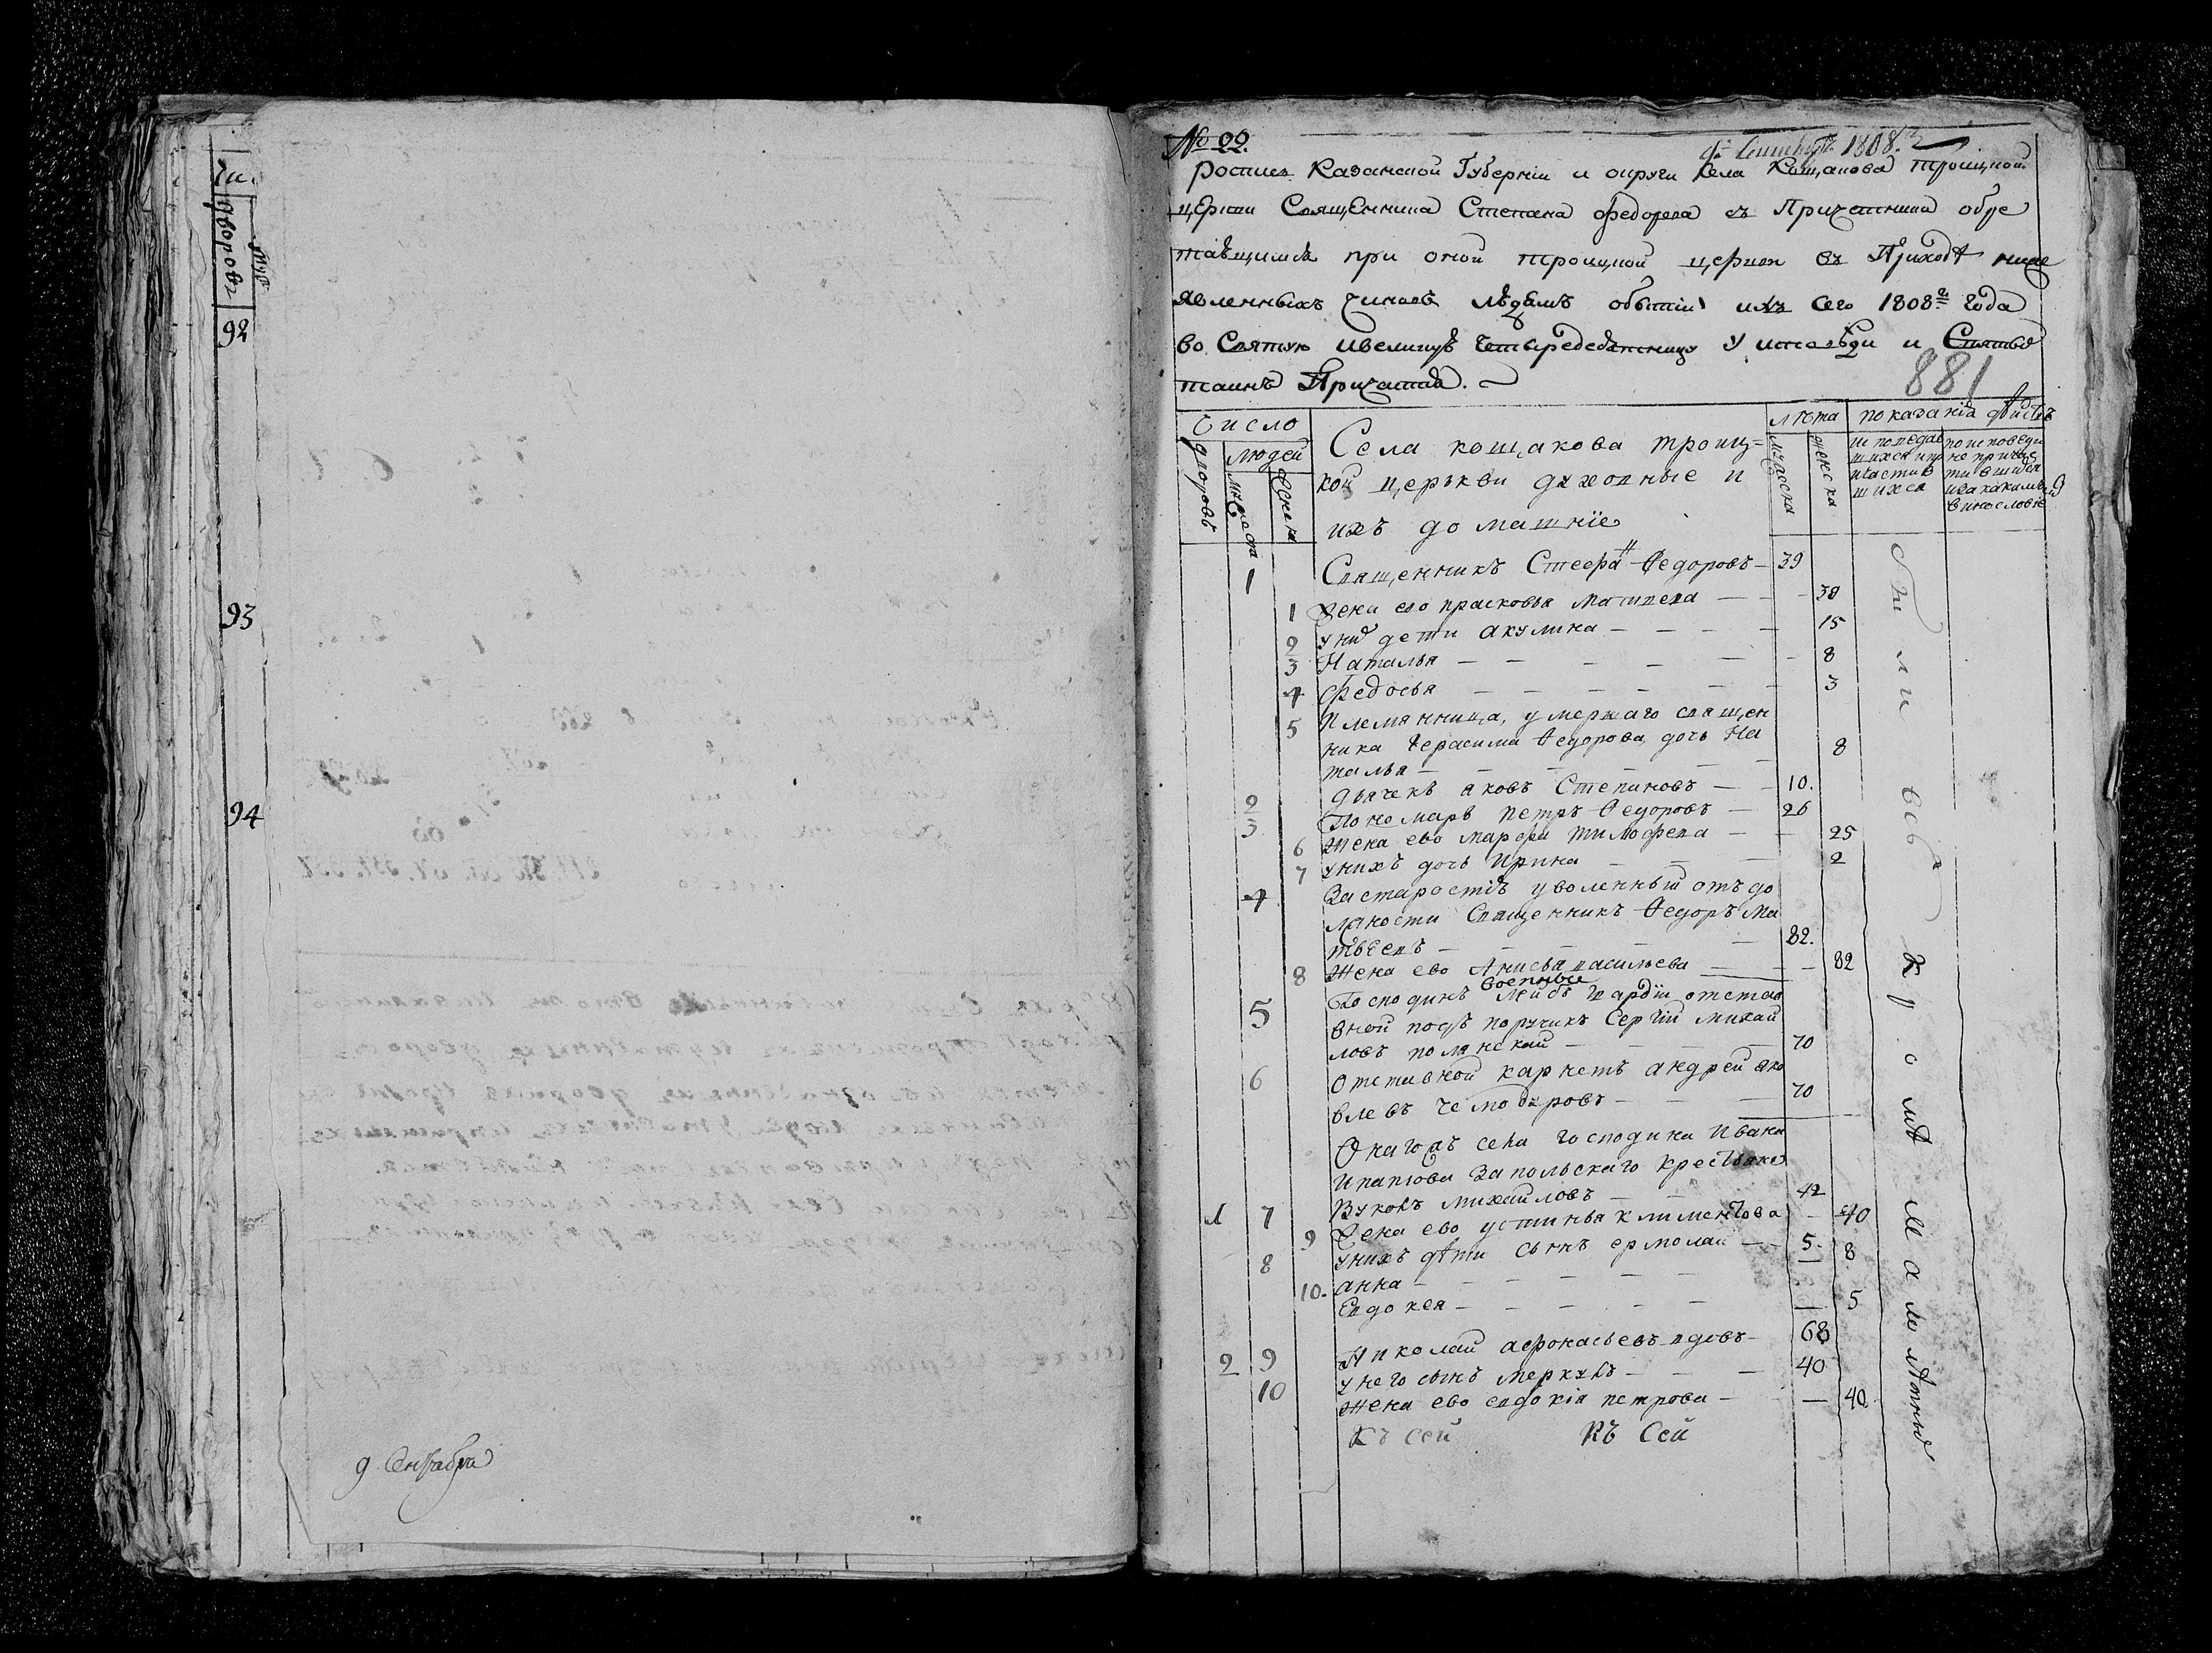 чи.
дворовъ
муж
92
93
94
9 Сентября
№ 22.
9. Сентября 1808.
Роспись Казанской Губерніи и округи Села Кощакова троицкой
церкви Священника Стефана Федорова съ Причетники обре
тающимся при оной троицкой церкви въ Приходѣ ниже
явленныхъ чиновъ людемъ обытіи ихъ сего 1808го года
во Святую и великую Четыредесятницу У исповѣди и Святыхъ
таинъ Причастія.
881
Число
дворовъ
людей
мужеска
женска
Села кощакова троиц=
кой церькви духовные и
ихъ домашніе
лѣта
мужеска
женска
показанія дѣйствъ
исповедав
шихся и пр
ичастив
шихся
по исповеди
не причас
тившихся
и за какимъ
винословіе
1 Священникъ Стефанъ Федоровъ — 39
1 Жена ево прасковья Матвеева — — 38
2 у них дети акулина — — — — 15
3 Наталья — — — — — — 8
4 Федосья — — — — — — 3
5 Племянница, умершаго священ
ника Герасима Федорова дочь На
талья — — — — — 8
2 дьячекъ яковъ Степановъ — — 10.
3 Пономарь петръ Федоровъ — 26
6 Жена ево марфа тимофеева — — 25
7 у нихъ дочь Ирина — — — 2
4 За старостію уволенный отъ до
лжности Священникъ Федоръ Ма
твѣевъ — — — — — 82.
8 Жена ево Анисья васильева — — — 82
военные
5 Господинъ Лейбъ гвардіи отстав
вной подъ поручикъ Сергій михай
ловъ полянской — — — — 70
6 Отставной карнетъ андрей яко
влевъ чемодуровъ — — — 70
Онагожъ села господина ивана
ипатова Запольскаго крестьяне
1 7 Вуколъ михайловъ — — 42
9 Жена ево устинья климентова — 40
8 у нихъ дѣти сынъ ермолай — — 5. 8
10. анна — — — — — —
Евдокея — — — — — — 5
2 9 Николай афонасьевъ вдовъ — 68
10 у него сынъ меркулъ — — — 40
Жена ево евдокія петрова — — 40.
Къ сей Къ Сей
были всѣ кромѣ малолѣтныхъ